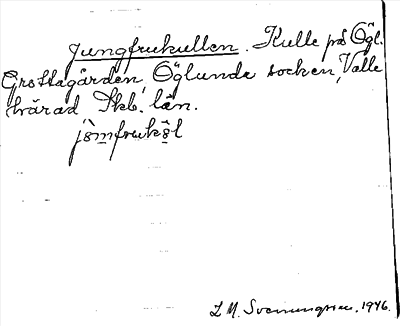 Jungfrukullen. Kulle på Ögl.
Grottagården, Öglunda socken, Valle
härad Skb. län.
jòmfruköl
L M. Svenungsson. 1946.